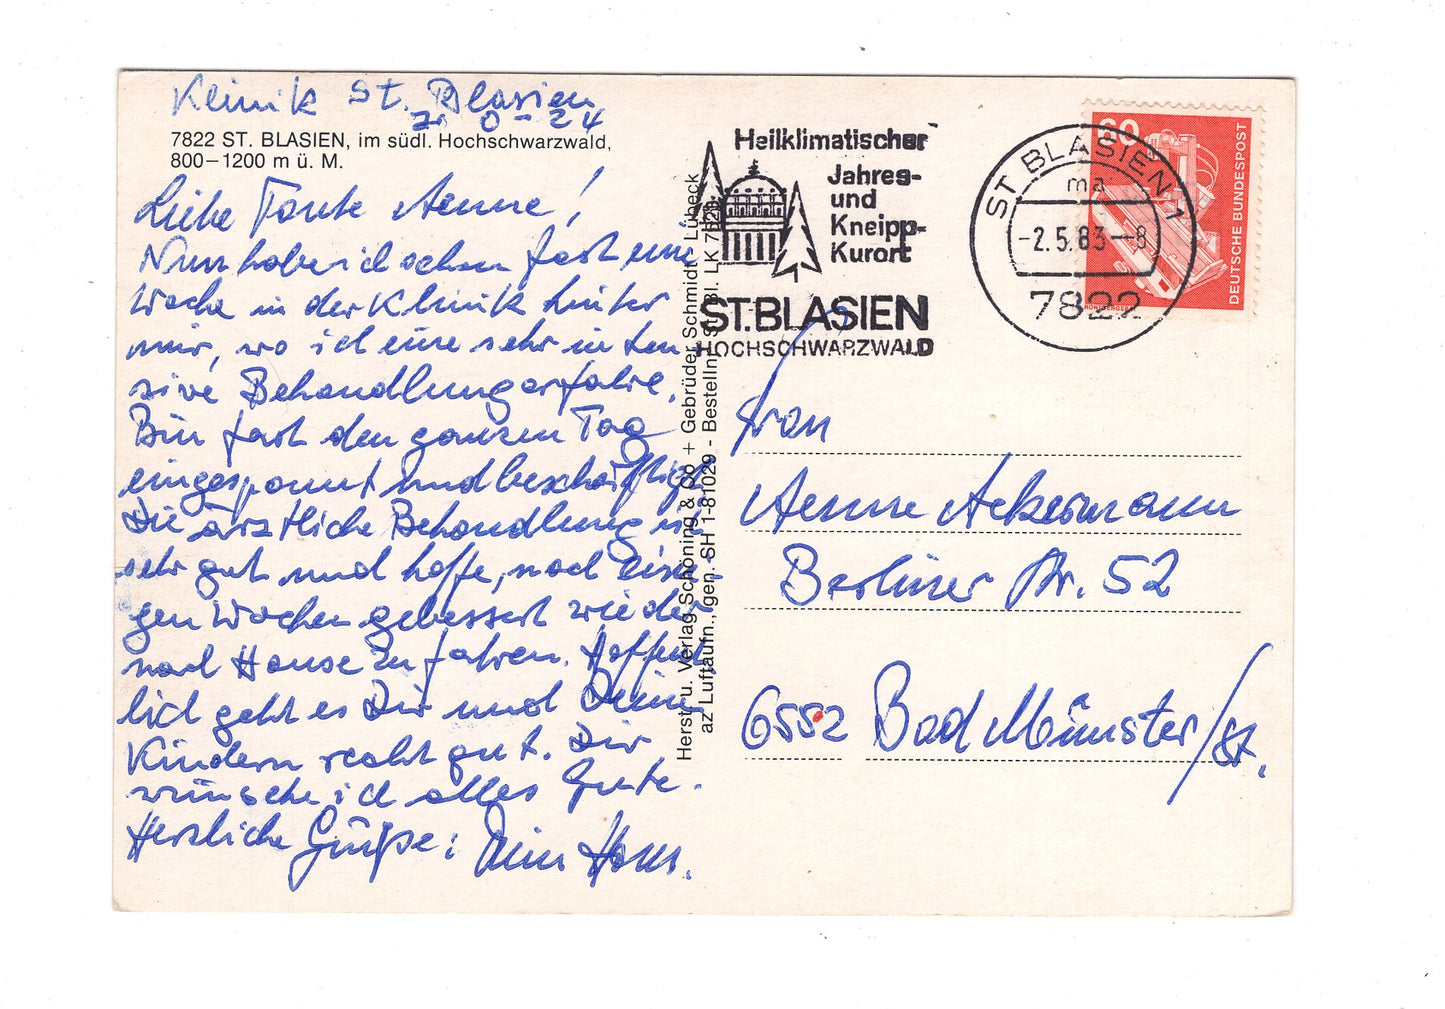 Klinik St. Blasien
Zi 0-24
7822 ST. BLASIEN, im südl. Hochschwarzwald,
800–1200 m ü. M.
Liebe Tante Aenne!
Nun habe ich schon fast eine
Woche in der Klinik hinter
mir, wo ich eine sehr inten
sive Behandlung erfahre.
Bin fast den ganzen Tag
eingespannt und beschäftigt.
Die ärztliche Behandlung ist
sehr gut und hoffe, nach eini-
gen Wochen gebessert wieder
nach Hause zu fahren. Hoffent
lich geht es Dir und Deinen
Kindern recht gut. Dir
wünsche ich alles Gute.
Herzliche Grüße: Dein Hans.
Herst. u. Verlag Schöning & Co + Gebrüder Schmidt, Lübeck
az Luftaufn., gen. SH 1-81029 - Bestellnr. St. Bl. LK 7821
Heilklimatischer
Jahres-
und
Kneipp-
Kurort
ST. BLASIEN
HOCHSCHWARZWALD
ST BLASIEN 1
ma
-2.5.83--8
7822
60
DEUTSCHE BUNDESPOST
Frau
Aenne Ackermann
Berliner Str. 52
6552 Bad Münster/St.